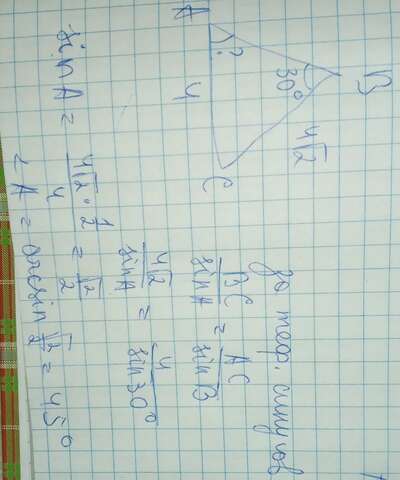 B
30°
4√2
A
?
4
C
теор. синусов
BC/sin A = AC/sin B
4√2/sin A = 4/sin 30°
sin A = (4√2 · 1/2)/4 = √2/2
∠A = arcsin √2/2 = 45°